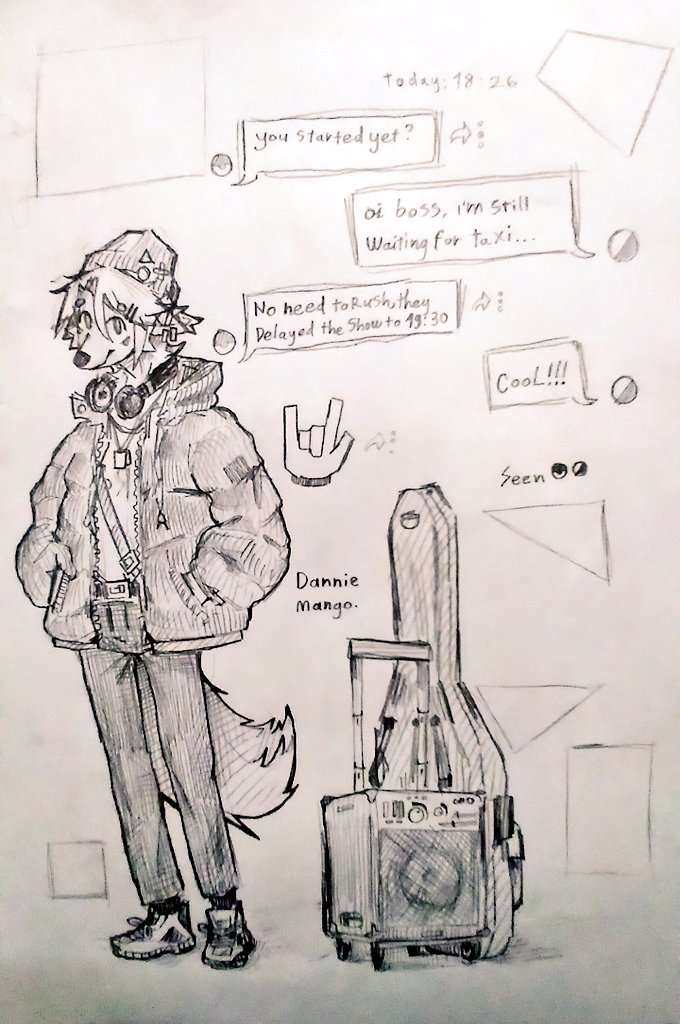 today: 18:26
you started yet?
oi boss, i'm still
Waiting for taxi...
No need to Rush, they
Delayed the Show to 19:30
CooL!!!
Seen
Dannie
Mango.